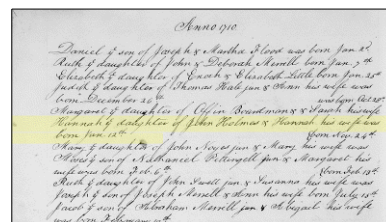 Anno 1710.
Daniel y son of Joseph & Martha Flood was born Jan. 2d
Ruth y daughter of John & Deborah Merrell born Jan. 7th
Elizabeth y daughter of Enoch & Elizabeth Little born Jan. 25th
Judith y daughter of Thomas Hale jun & Ann his wife was
born December 26th was born Oct. 25th
Margaret y daughter of Offin Boardman & Sarah his wife
Hannah y daughter of John Holmes & Hannah his wife was
born Jan. 12th born Nov. 24th
Mary y daughter of John Noyes jun & Mary his was
Moses y son of Nathaniel Pettingell jun & Margaret his
wife was born Feb. 6th born Feb. 13th
Ruth y daughter of John Swett jun & Susanna his wife was
Joseph y son of Joseph Morsell & Ann his wife born July 15th
Jacob y son of Abraham Merrell jun & Abigail his wife
was born February